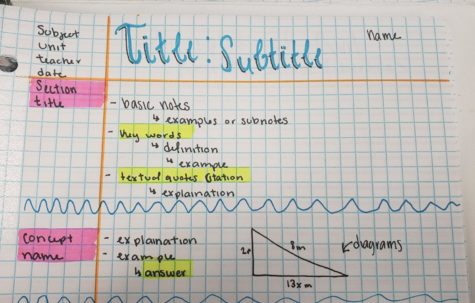 Subject
unit
teacher
date
Title: Subtitle
name
Section
title
- basic notes
↳ examples or subnotes
- Key words
↳ definition
↳ example
- textual quotes citation
↳ explaination
concept
name
- explaination
- example
↳ answer
8m
13xm
↙diagrams